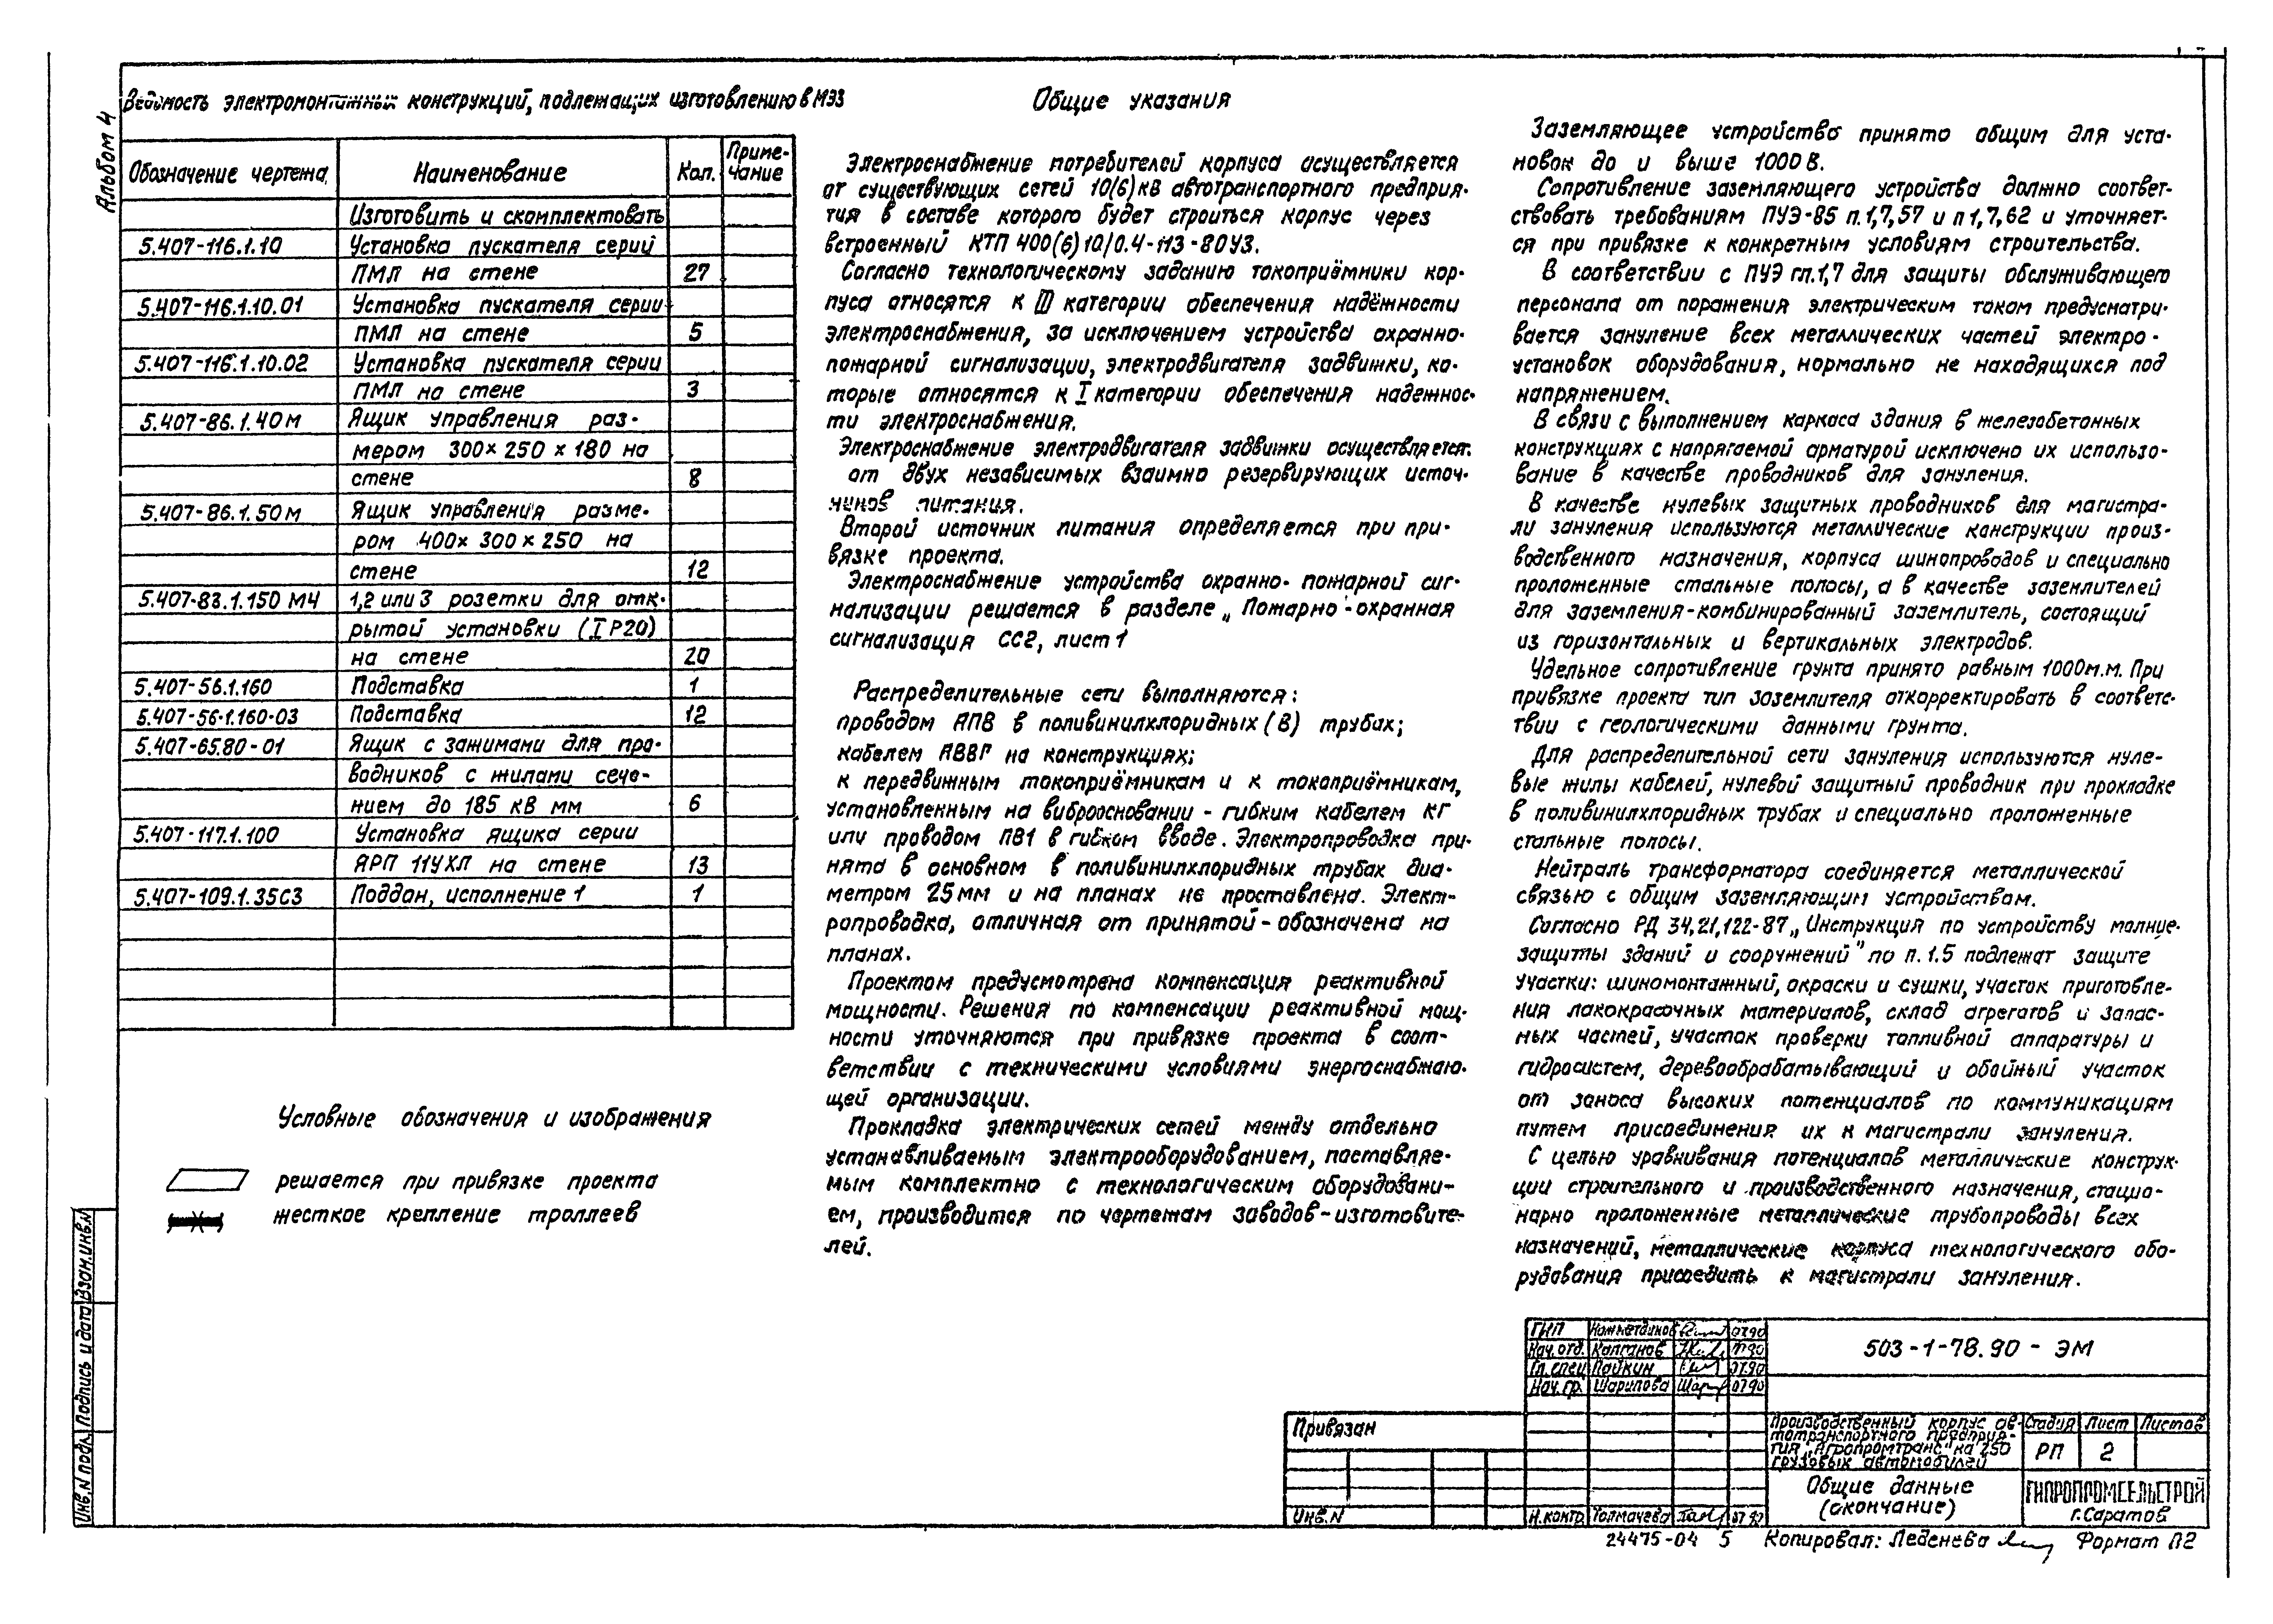 Альбом 4
Ведомость электромонтажных конструкций, подлежащих изготовлению в МЭЗ
Обозначение чертежа Наименование Кол. Приме-
чание
Изготовить и скомплектовать
5.407-116.1.10 Установка пускателя серий
ПМЛ на стене 27
5.407-116.1.10.01 Установка пускателя серии
ПМЛ на стене 5
5.407-116.1.10.02 Установка пускателя серии
ПМЛ на стене 3
5.407-86.1.40м Ящик управления раз-
мером 300×250×180 на
стене 8
5.407-86.1.50м Ящик управления разме-
ром 400×300×250 на
стене 12
5.407-83.1.150 МЧ 1,2 или 3 розетки для отк-
рытой установки (IP20)
на стене 20
5.407-56.1.160 Подставка 1
5.407-56.1.160-03 Подставка 12
5.407-65.80-01 Ящик с зажимами для про-
водников с жилами сече-
нием до 185 кв мм 6
5.407-117.1.100 Установка ящика серии
ЯРП 11УХЛ на стене 13
5.407-109.1.35СЗ Поддон, исполнение 1 1
Условные обозначения и изображения
решается при привязке проекта
жесткое крепление троллеев
Общие указания
Электроснабжение потребителей корпуса осуществляется
от существующих сетей 10(6)кВ автотранспортного предприя-
тия в составе которого будет строиться корпус через
встроенный КТП 400(6)10/0.4-113-80У3.
Согласно технологическому заданию токоприёмники кор-
пуса относятся к III категории обеспечения надёжности
электроснабжения, за исключением устройства охранно-
пожарной сигнализации, электродвигателя задвижки, ко-
торые относятся к I категории обеспечения надежнос-
ти электроснабжения.
Электроснабжение электродвигателя задвижки осуществляется
от двух независимых взаимно резервирующих источ-
ников питания.
Второй источник питания определяется при при-
вязке проекта.
Электроснабжение устройства охранно-пожарной сиг-
нализации решается в разделе „Пожарно-охранная
сигнализация СС2, лист 1
Распределительные сети выполняются:
проводом АПВ в поливинилхлоридных (В) трубах;
кабелем АВВГ на конструкциях;
к передвижным токоприёмникам и к токоприёмникам,
установленным на виброосновании - гибким кабелем КГ
или проводом ПВ1 в гибком вводе. Электропроводка при-
нята в основном в поливинилхлоридных трубах диа-
метром 25мм и на планах не проставлена. Элект-
ропроводка, отличная от принятой - обозначена на
планах.
Проектом предусмотрена компенсация реактивной
мощности. Решения по компенсации реактивной мощ-
ности уточняются при привязке проекта в соот-
ветствии с техническими условиями энергоснабжаю-
щей организации.
Прокладка электрических сетей между отдельно
устанавливаемым электрооборудованием, поставляе-
мым комплектно с технологическим оборудовани-
ем, производится по чертежам заводов-изготовите-
лей.
Заземляющее устройство принято общим для уста-
новок до и выше 1000 В.
Сопротивление заземляющего устройства должно соответ-
ствовать требованиям ПУЭ-85 п.1,7,57 и п 1,7,62 и уточняет-
ся при привязке к конкретным условиям строительства.
В соответствии с ПУЭ гл.1,7 для защиты обслуживающего
персонала от поражения электрическим током предусматри-
вается зануление всех металлических частей электро-
установок оборудования, нормально не находящихся под
напряжением.
В связи с выполнением каркаса здания в железобетонных
конструкциях с напрягаемой арматурой исключено их использо-
вание в качестве проводников для зануления.
В качестве нулевых защитных проводников для магистра-
ли зануления используются металлические конструкции произ-
водственного назначения, корпуса шинопроводов и специально
проложенные стальные полосы, а в качестве заземлителей
для заземления-комбинированный заземлитель, состоящий
из горизонтальных и вертикальных электродов.
Удельное сопротивление грунта принято равным 100Ом.м. При
привязке проекта тип заземлителя откорректировать в соответс-
твии с геологическими данными грунта.
Для распределительной сети зануления используются нуле-
вые жилы кабелей, нулевой защитный проводник при прокладке
в поливинилхлоридных трубах и специально проложенные
стальные полосы.
Нейтраль трансформатора соединяется металлической
связью с общим заземляющим устройством.
Согласно РД 34,21,122-87 „Инструкция по устройству молние-
защиты зданий и сооружений" по п.1.5 подлежат защите
участки: шиномонтажный, окраски и сушки, участок приготовле-
ния лакокрасочных материалов, склад агрегатов и запас-
ных частей, участок проверки топливной аппаратуры и
гидросистем, деревообрабатывающий и обойный участок
от заноса высоких потенциалов по коммуникациям
путем присоединения их к магистрали зануления.
С целью уравнивания потенциалов металлические конструк-
ции строительного и производственного назначения, стацио-
нарно проложенные металлические трубопроводы всех
назначений, металлические корпуса технологического обо-
рудования присоединить к магистрали зануления.
ГИП 07.90
Нач. отд. Калганов
Гл. спец. Пайкин 07.90
Нач. гр. Шарипова 07.90
Н.контр. Толмачева 07.90
503-1-78.90 - ЭМ
Производственный корпус ав-
тотранспортного предприя-
тия „Агропромтранс" на 250
грузовых автомобилей
Стадия Лист Листов
РП 2
Общие данные
(окончание)
ГИПРОПРОМСЕЛЬСТРОЙ
г.Саратов
Привязан
Инв.N
Инв.N подл. Подпись и дата Взам.инв.N
24475-04 5 Копировал: Леденева Формат А2